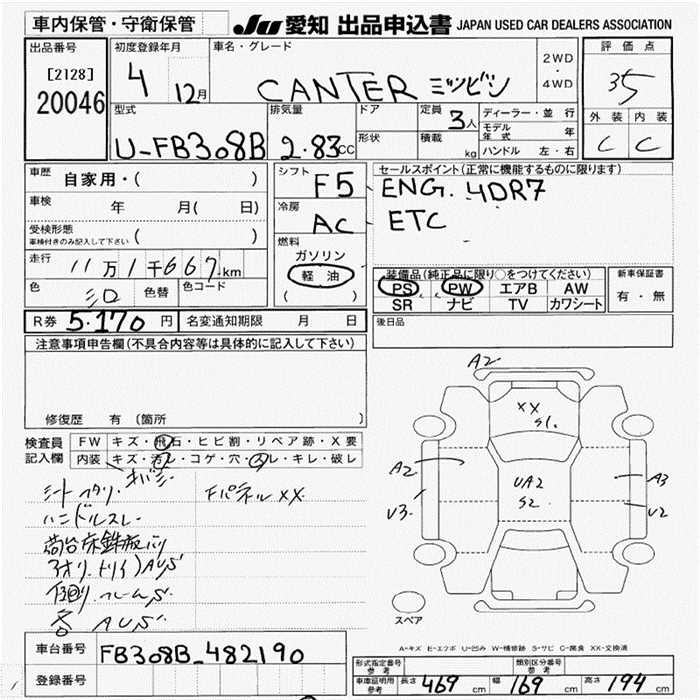 車内保管・守衛保管
JU 愛知 出品申込書 JAPAN USED CAR DEALERS ASSOCIATION
出品番号
[2128]
20046
初度登録年月
4 12月
車名・グレード
CANTER ミツビシ
2WD
・
4WD
評価点
35
外装 内装
C C
型式
U-FB308B
排気量
2.83CC
ドア
形状
定員 3人
積載 kg
ディーラー・並行
モデル年式 年
ハンドル 左・右
車歴 自家用・( )
車検 年 月( 日)
受検形態
車検付きのみ記入して下さい ( )
走行 11万1千667km
色 シロ 色替 色コード
シフト F5
冷房 AC
燃料
ガソリン
軽油
( )
セールスポイント(正常に機能するものに限ります)
ENG. 4DR7
ETC
装備品(純正品に限り○をつけてください)
PS PW エアB AW
SR ナビ TV カワシート
新車保証書
有・無
R券 5.170円 名変通知期限 月 日
後日品
注意事項申告欄(不具合内容等は具体的に記入して下さい)
修復歴 有 (箇所 )
検査員記入欄
FW キズ・飛石・ヒビ割・リペア跡・X要
内装 キズ・汚レ・コゲ・穴・スレ・キレ・破レ
Fパネル XX
ハンドルスレ
荷台床鉄板バリ
A2
XX
S1.
A2
UA2
S2
A3
U3
U2
スペア
A-キズ E-エクボ U-凹み W-補修跡 S-サビ C-腐食 XX-交換済
車台番号 FB308B-482190
登録番号
形式指定番号
参考
類別区分番号
参考
車庫証明用
参考
長さ 469 cm 幅 169 cm 高さ 194 cm